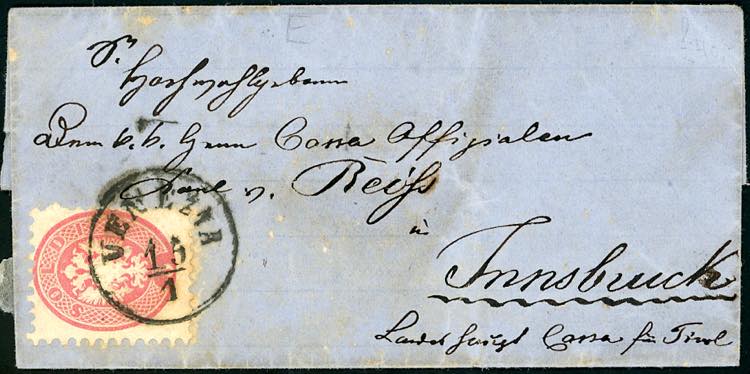 E
Sr
Hochwohlgeboren
Dem k. k. Herrn Cassa Offizialen
Karl v. Reiss
in
Innsbruck
Landes haupt Cassa für Tirol
VENEZIA
15
1
SOLDI